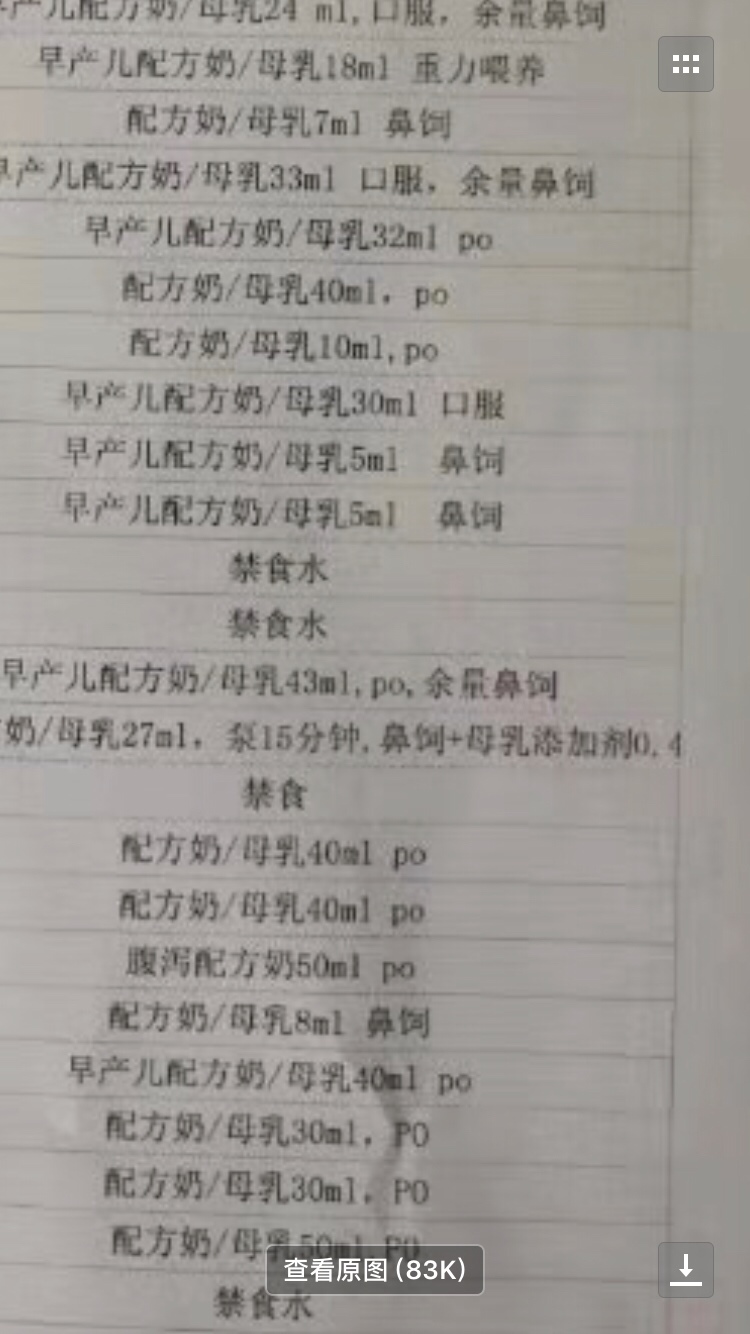 早产儿配方奶/母乳24 ml,口服，余量鼻饲
早产儿配方奶/母乳18ml 重力喂养
配方奶/母乳7ml 鼻饲
早产儿配方奶/母乳33ml 口服，余量鼻饲
早产儿配方奶/母乳32ml po
配方奶/母乳40ml，po
配方奶/母乳10ml,po
早产儿配方奶/母乳30ml 口服
早产儿配方奶/母乳5ml 鼻饲
早产儿配方奶/母乳5ml 鼻饲
禁食水
禁食水
早产儿配方奶/母乳43ml,po,余量鼻饲
奶/母乳27ml，泵15分钟,鼻饲+母乳添加剂0.4
禁食
配方奶/母乳40ml po
配方奶/母乳40ml po
腹泻配方奶50ml po
配方奶/母乳8ml 鼻饲
早产儿配方奶/母乳40ml po
配方奶/母乳30ml，PO
配方奶/母乳30ml，PO
配方奶/母乳50ml,PO
查看原图(83K)
禁食水